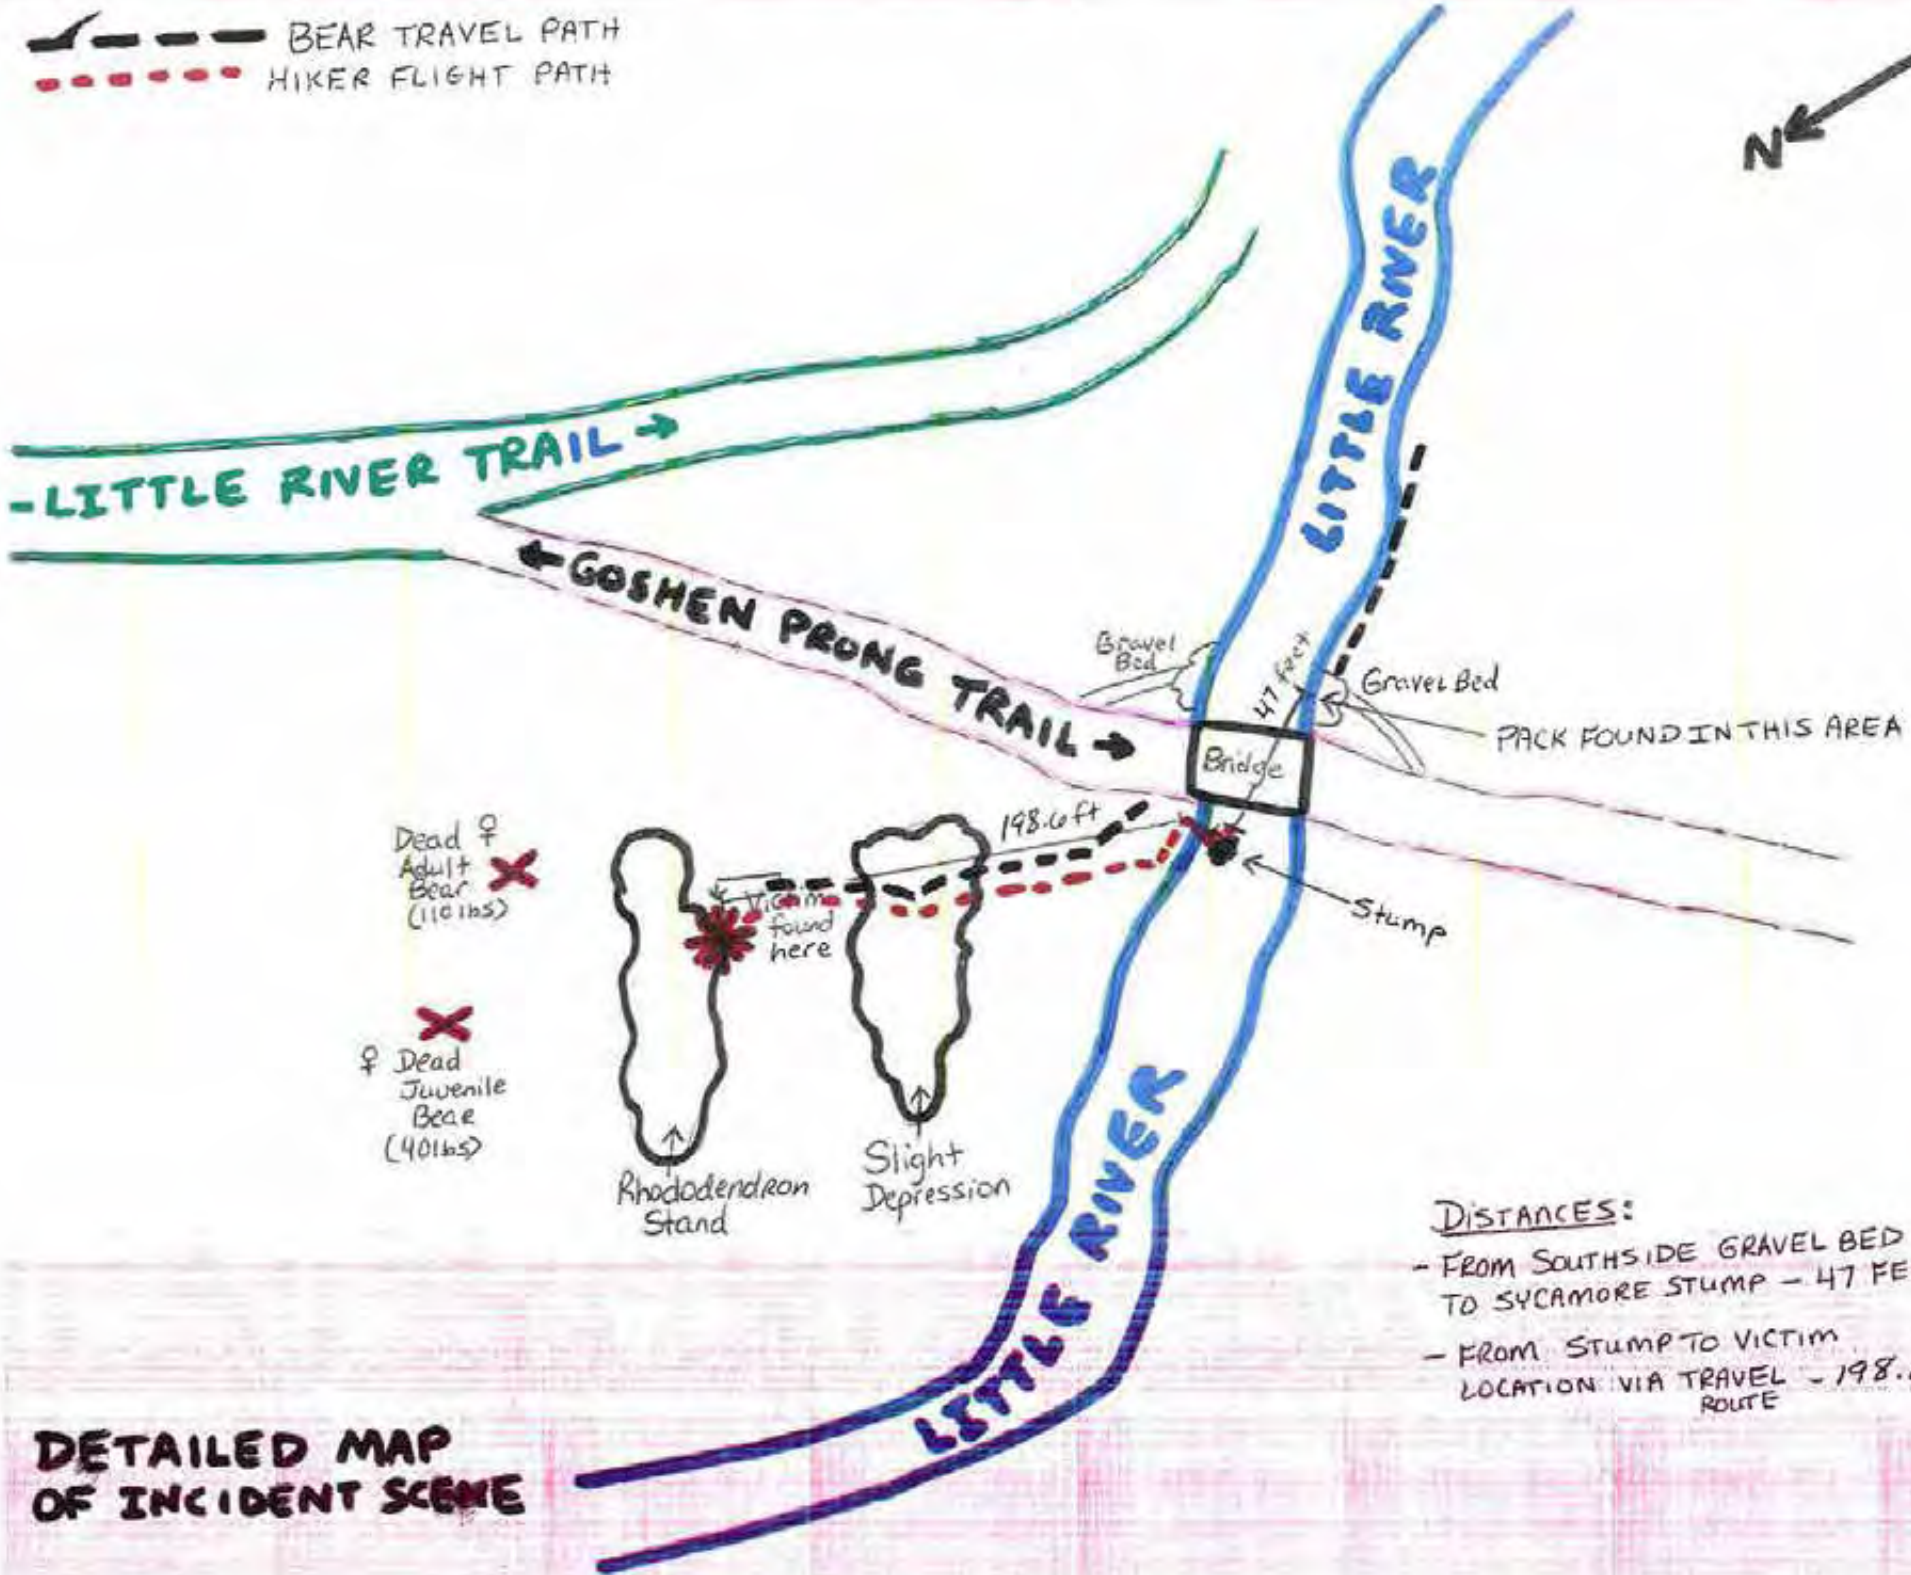 BEAR TRAVEL PATH
HIKER FLIGHT PATH
N
LITTLE RIVER
- LITTLE RIVER TRAIL →
← GOSHEN PRONG TRAIL →
LITTLE RIVER
Gravel
Bed
47 feet
Gravel Bed
PACK FOUND IN THIS AREA
Bridge
198.6 ft
Stump
Dead ♀
Adult
Bear
(110 lbs)
Victim
found
here
♀ Dead
Juvenile
Bear
(40 lbs)
Rhododendron
Stand
Slight
Depression
LITTLE RIVER
LITTLE RIVER
DISTANCES:
- FROM SOUTHSIDE GRAVEL BED
TO SYCAMORE STUMP - 47 FE
- FROM STUMP TO VICTIM
LOCATION VIA TRAVEL - 198.
ROUTE
DETAILED MAP
OF INCIDENT SCENE